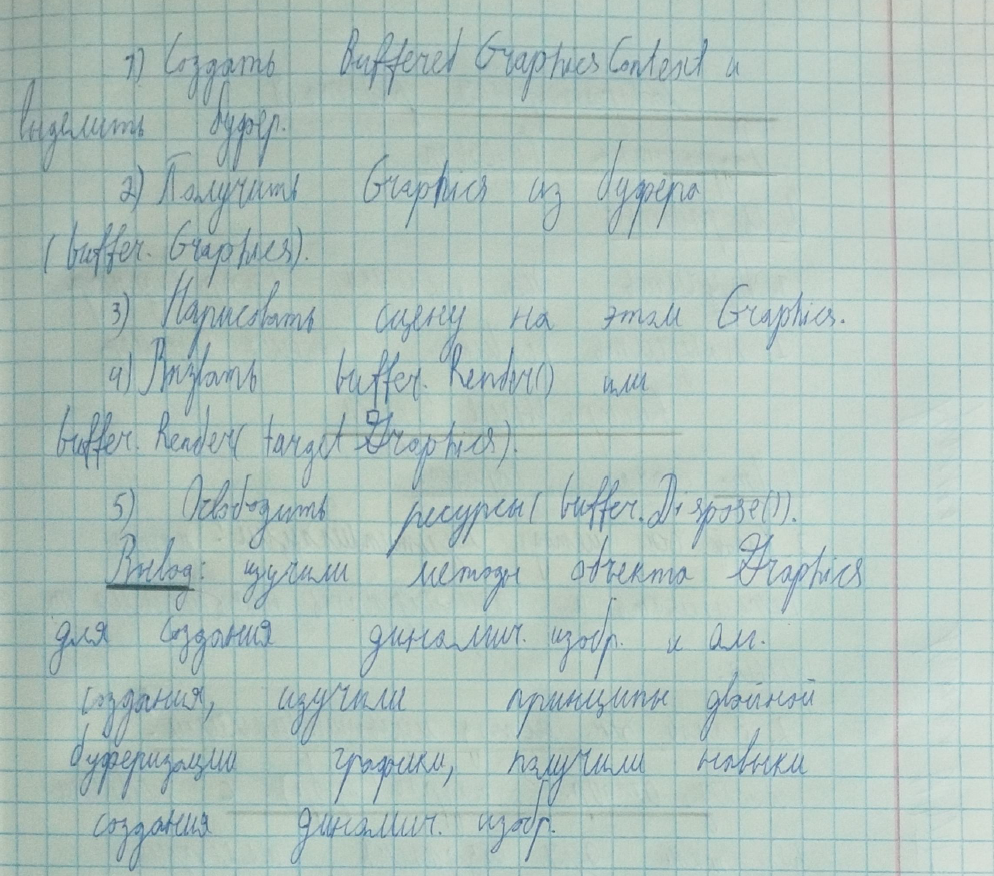 1) Создать Buffered Graphics Context и
выделить буфер.
2) Получить Graphics из буфера
(buffer. Graphics).
3) Нарисовать сцену на этом Graphics.
4) Вызвать buffer. Render() или
buffer. Render( target Graphics).
5) Освободить ресурсы( buffer. Dispose()).
Вывод: изучили методы объекта Graphics
для создания динамич. изобр. и ал.
создания, изучили принципы двойной
буферизации графики, получили навыки
создания динамич. изобр.